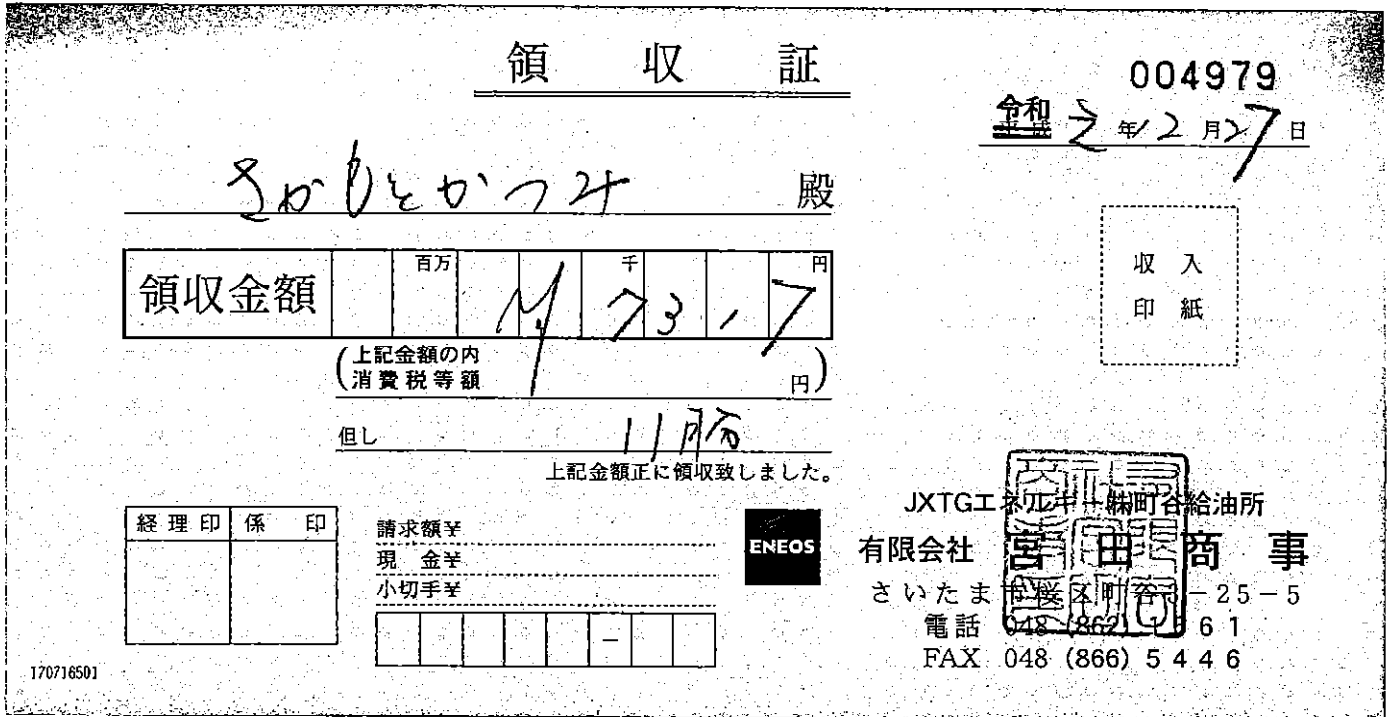 領収証
004979
令和 元年12月27日
さかもとかつみ 殿
領収金額 百万 千 円
¥7317
(上記金額の内
消費税等額 円)
但し 11月分
上記金額正に領収致しました。
経理印 係印
請求額¥
現金¥
小切手¥
ENEOS
JXTGエネルギー㈱町谷給油所
有限会社 宮田商事
さいたま市桜区町谷3-25-5
電話 048 (862) 1361
FAX 048 (866) 5446
170716501